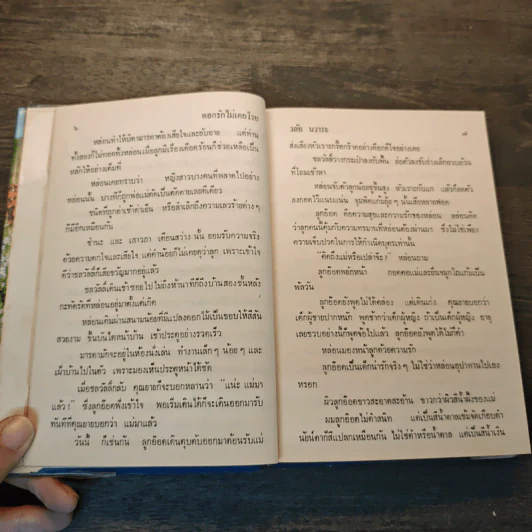 ๖
ดอกรักไม่เคยโรย
หล่อนทำให้บิดามารดาต้องเสียใจและอับอาย แต่ท่าน
ทั้งสองก็ไม่ทอดทิ้งหล่อนเมื่อลูกมีเรื่องเดือดร้อนก็ช่วยเหลือเป็น
หลักให้อย่างเต็มที่
หล่อนเคยทราบว่า หญิงสาวบางคนที่พลาดไปอย่าง
หล่อนนั้น บางทีก็ถูกพ่อแม่ตัดเป็นตัดตายเลยทีเดียว
ชนิดที่ถูกด่าเช้าด่าเย็น หรือลำเลิกถึงความเลวร้ายต่างๆ
ก็มีอีกเหมือนกัน
ชำนะ และ เสาวภา เตือนสว่าง นั้น ยอมรับความจริง
ด้วยความตกใจและเสียใจ แต่ค่าน้อยก็ไม่เคยด่าว่าลูก เพราะเข้าใจ
ดีว่าชลวัลลิ์ก็เสียขวัญมากอยู่แล้ว
ชลวัลลิ์เดินเข้าซอยไป ไม่ถึงห้านาทีก็ถึงบ้านสองชั้นหลัง
กะทัดรัดที่หล่อนอยู่มาตั้งแต่เกิด
หล่อนเดินผ่านสนามน้อยที่มีแปลงดอกไม้เป็นขอบให้สีสัน
สวยงาม ขึ้นบันไดหน้าบ้าน เข้าประตูอย่างรวดเร็ว
มารดามักจะอยู่ในห้องนั่งเล่น ทำงานเล็กๆ น้อยๆ และ
เฝ้าบ้านไปในตัว เพราะมองเห็นประตูหน้าได้ชัด
เมื่อชลวัลลิ์กลับ คุณยายก็จะบอกหลานว่า "แน่ะ แม่มา
แล้ว !" ซึ่งลูกอ๊อดพึ่งเข้าใจ พอเริ่มเดินได้ก็จะเดินออกมารับ
ทันทีที่คุณยายบอกว่า แม่มาแล้ว
วันนี้ ก็เช่นกัน ลูกอ๊อดเดินตุบตับออกมาต้อนรับแม่
วลัย นวาระ
๗
ส่งเสียงหัวเราะกรี๊ดกร๊าดอย่างดีอกดีใจอย่างเคย
ชลวัลลิ์วางกระเป๋าลงกับพื้น ย่อตัวลงรับร่างเล็กอวบอ้วน
ที่โถมเข้าหา
หล่อนจับตัวลูกน้อยชูขึ้นสูง หัวเราะกับแก แล้วก็ลดตัว
ลงกอดไว้แนบแน่น จูบฟัดแก้มยุ้ย ๆ นั้นเสียหลายฟอด
ลูกอ๊อด คือความสุขและความรักของหล่อน หล่อนคิด
ว่าลูกคนนี้คุ้มกับความทรมานที่หล่อนต้องผ่านมา ซึ่งไม่ใช่เพียง
ความเจ็บปวดในการให้กำเนิดบุตรเท่านั้น
"คิดถึงแม่หรือเปล่าจ๊ะ?" หล่อนถาม
ลูกอ๊อดพยักหน้า กอดคอแม่และยื่นจมูกไถแก้มเป็น
พัลวัน
ลูกอ๊อดยังพูดไม่ได้คล่อง แต่เดินเก่ง คุณยายบอกว่า
เด็กผู้ชายปากหนัก พูดช้ากว่าเด็กผู้หญิง ถ้าเป็นเด็กผู้หญิง อายุ
เลยขวบอย่างนี้ก็พูดจ้อไปแล้ว ลูกอ๊อดยังพูดได้ไม่กี่คำ
หล่อนมองหน้าลูกด้วยความรัก
ลูกอ๊อดเป็นเด็กน่ารักจริงๆ ไม่ใช่ว่าหล่อนอุปาทานไปเอง
หรอก
ผิวลูกอ๊อดขาวสะอาดสะอ้าน ขาวกว่าผิวสีน้ำผึ้งของแม่
ผมลูกอ๊อดไม่ดำสนิท แต่เป็นสีน้ำตาลเข้มจัดเกือบดำ
นัยน์ตาก็สีแปลกเหมือนกัน ไม่ใช่ดำหรือน้ำตาล แต่เป็นสีน้ำเงิน